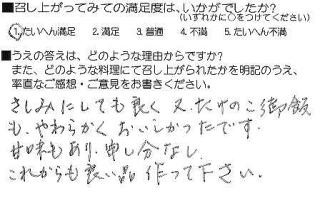 ■召し上がってみての満足度は、いかがでしたか？
(いずれかに○をつけてください)
1.たいへん満足 2.満足 3.普通 4.不満 5.たいへん不満
■うえの答えは、どのような理由からですか？
また、どのような料理にて召し上がられたかを明記のうえ、
率直なご感想・ご意見をお書きください。
さしみにしても良く 又、たけのこ御飯
も、やわらかく おいしかったです。
甘味もあり、申し分なし。
これからも良い品 作って下さい。